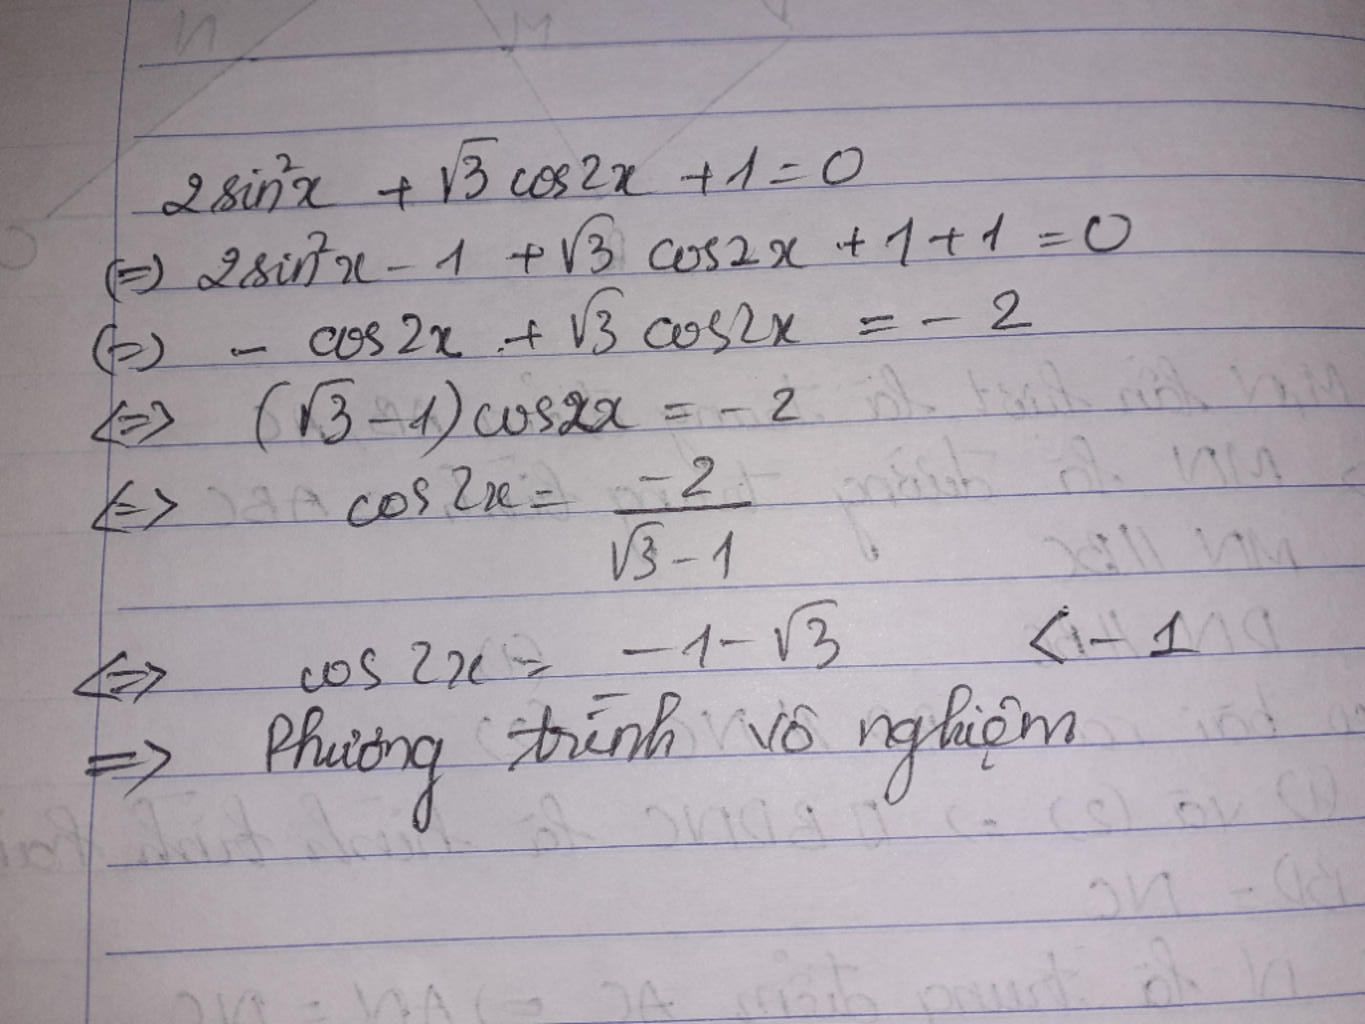 2sin²x + √3 cos2x + 1 = 0
(=) 2sin²x - 1 + √3 cos2x + 1 + 1 = 0
(=) - cos2x + √3 cos2x = - 2
<=> (√3 - 1) cos2x = - 2
<=> cos2x = -2 / √3 - 1
<=> cos2x = -1 - √3 < -1
=> Phương trình vô nghiệm